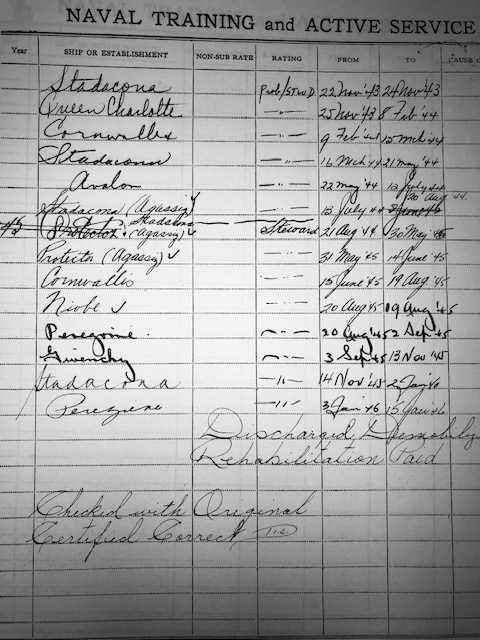 NAVAL TRAINING and ACTIVE SERVICE
Year SHIP OR ESTABLISHMENT NON-SUB RATE RATING FROM TO CAUSE
Stadacona Prob/STWD 22 Nov '43 24 Nov '43
Queen Charlotte —"— 25 Nov '43 8 Feb '44
Cornwallis —"— 9 Feb '44 15 Mch '44
Stadacona —"— 16 Mch 44 21 May '44
Avalon —"— 22 May '44 12 July
20 Aug 44
Stadacona (Agassiz) —"— 13 July 44
Protector Stadacona (Agassiz) Steward 21 Aug 44 30 May 45
Protector (Agassiz) —"— 31 May '45 14 June '45
Cornwallis —"— 15 June '45 19 Aug '45
Niobe —"— 20 Aug 45 19 Aug '45
Peregrine —"— 20 Aug '45 2 Sep 45
Givenchy —"— 3 Sep 45 13 Nov '45
Stadacona —"— 14 Nov '45 2 Jan 46
Peregrine —"— 3 Jan 46 15 Jan 46
Discharged Demobilz
Rehabilitation Paid
Checked with Original
Certified Correct